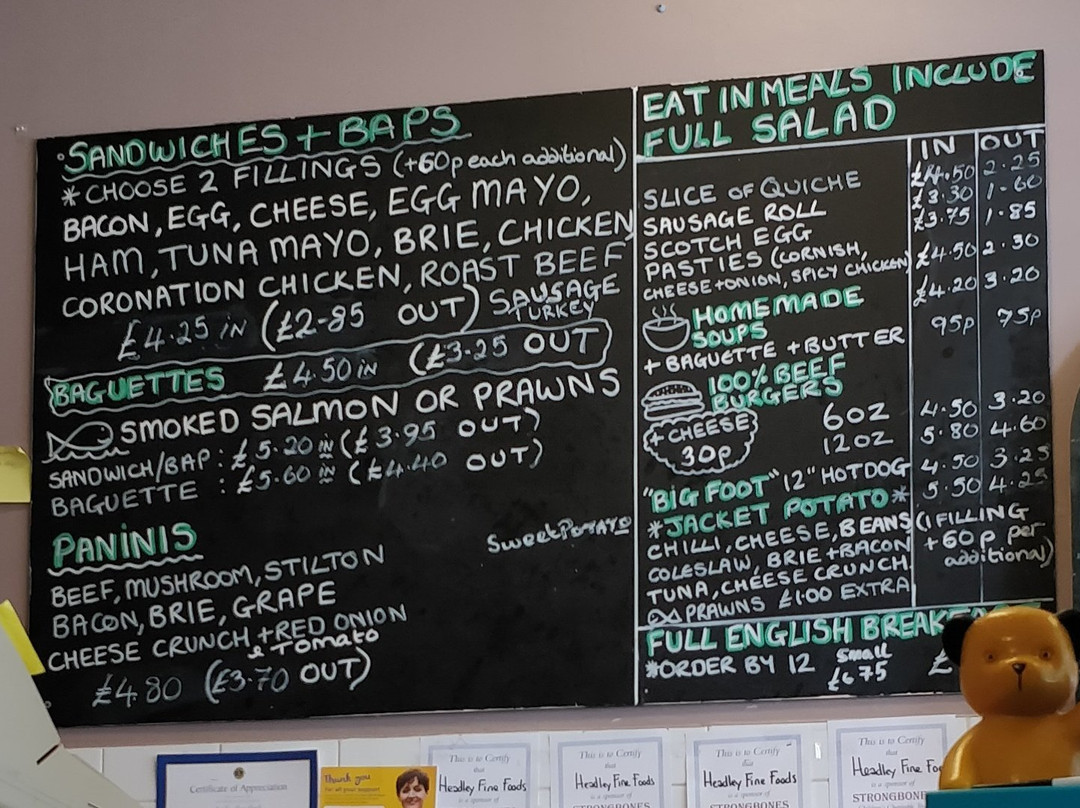 SANDWICHES + BAPS
*CHOOSE 2 FILLINGS (+60p each additional)
BACON, EGG, CHEESE, EGG MAYO,
HAM, TUNA MAYO, BRIE, CHICKEN
CORONATION CHICKEN, ROAST BEEF
£4.25 IN (£2-85 OUT) SAUSAGE
TURKEY
BAGUETTES £4.50 IN (£3.25 OUT)
SMOKED SALMON OR PRAWNS
SANDWICH/BAP: £5.20 IN (£3.95 OUT)
BAGUETTE : £5.60 IN (£4.40 OUT)
PANINIS
Sweet Potato
BEEF, MUSHROOM, STILTON
BACON, BRIE, GRAPE
CHEESE CRUNCH + RED ONION
& Tomato
£4.80 (£3.70 OUT)
EAT IN MEALS INCLUDE
FULL SALAD
IN OUT
SLICE OF QUICHE £4.50 2.25
SAUSAGE ROLL £3.30 1-60
SCOTCH EGG £3.75 1.85
PASTIES (CORNISH, £4.50 2.30
CHEESE+ONION, SPICY CHICKEN)
HOMEMADE £4.20 3.20
SOUPS
+ BAGUETTE + BUTTER 95p 75p
100% BEEF
BURGERS
6OZ 4.50 3.20
+ CHEESE
30p
12OZ 5.80 4.60
"BIG FOOT" 12" HOTDOG 4.50 3.25
*JACKET POTATO* 5.50 4.25
CHILLI, CHEESE, BEANS (1 FILLING
COLESLAW, BRIE + BACON +60p per
TUNA, CHEESE CRUNCH additional)
PRAWNS £1.00 EXTRA
FULL ENGLISH
*ORDER BY 12 Small £
£6.75
Certificate of Appreciation
Thank you
This is to Certify
that
Headley Fine Foods
is a sponsor of
This is to Certify
that
Headley Fine Foods
is a sponsor of
STRONGBONES
This is to Certify
that
Headley Fine Foods
is a sponsor of
STRONGBONES
This is to Certify
that
Headley Fine
is a sponsor of
STRONGBONES